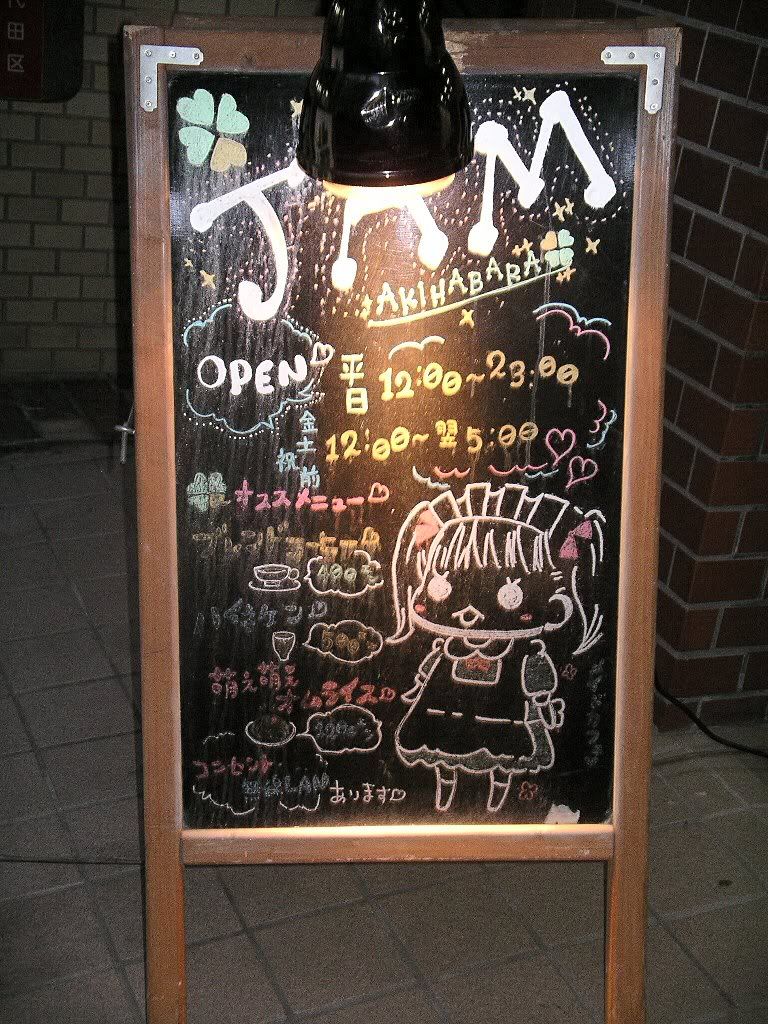 代田区
JAM
AKIHABARA
OPEN
平日 12:00~23:00
金土祝前 12:00~翌5:00
オススメニュー
ブレンドコーヒー
400
ハイネケン
500
萌え萌え
オムライス
コンセント
無線LAN
あります